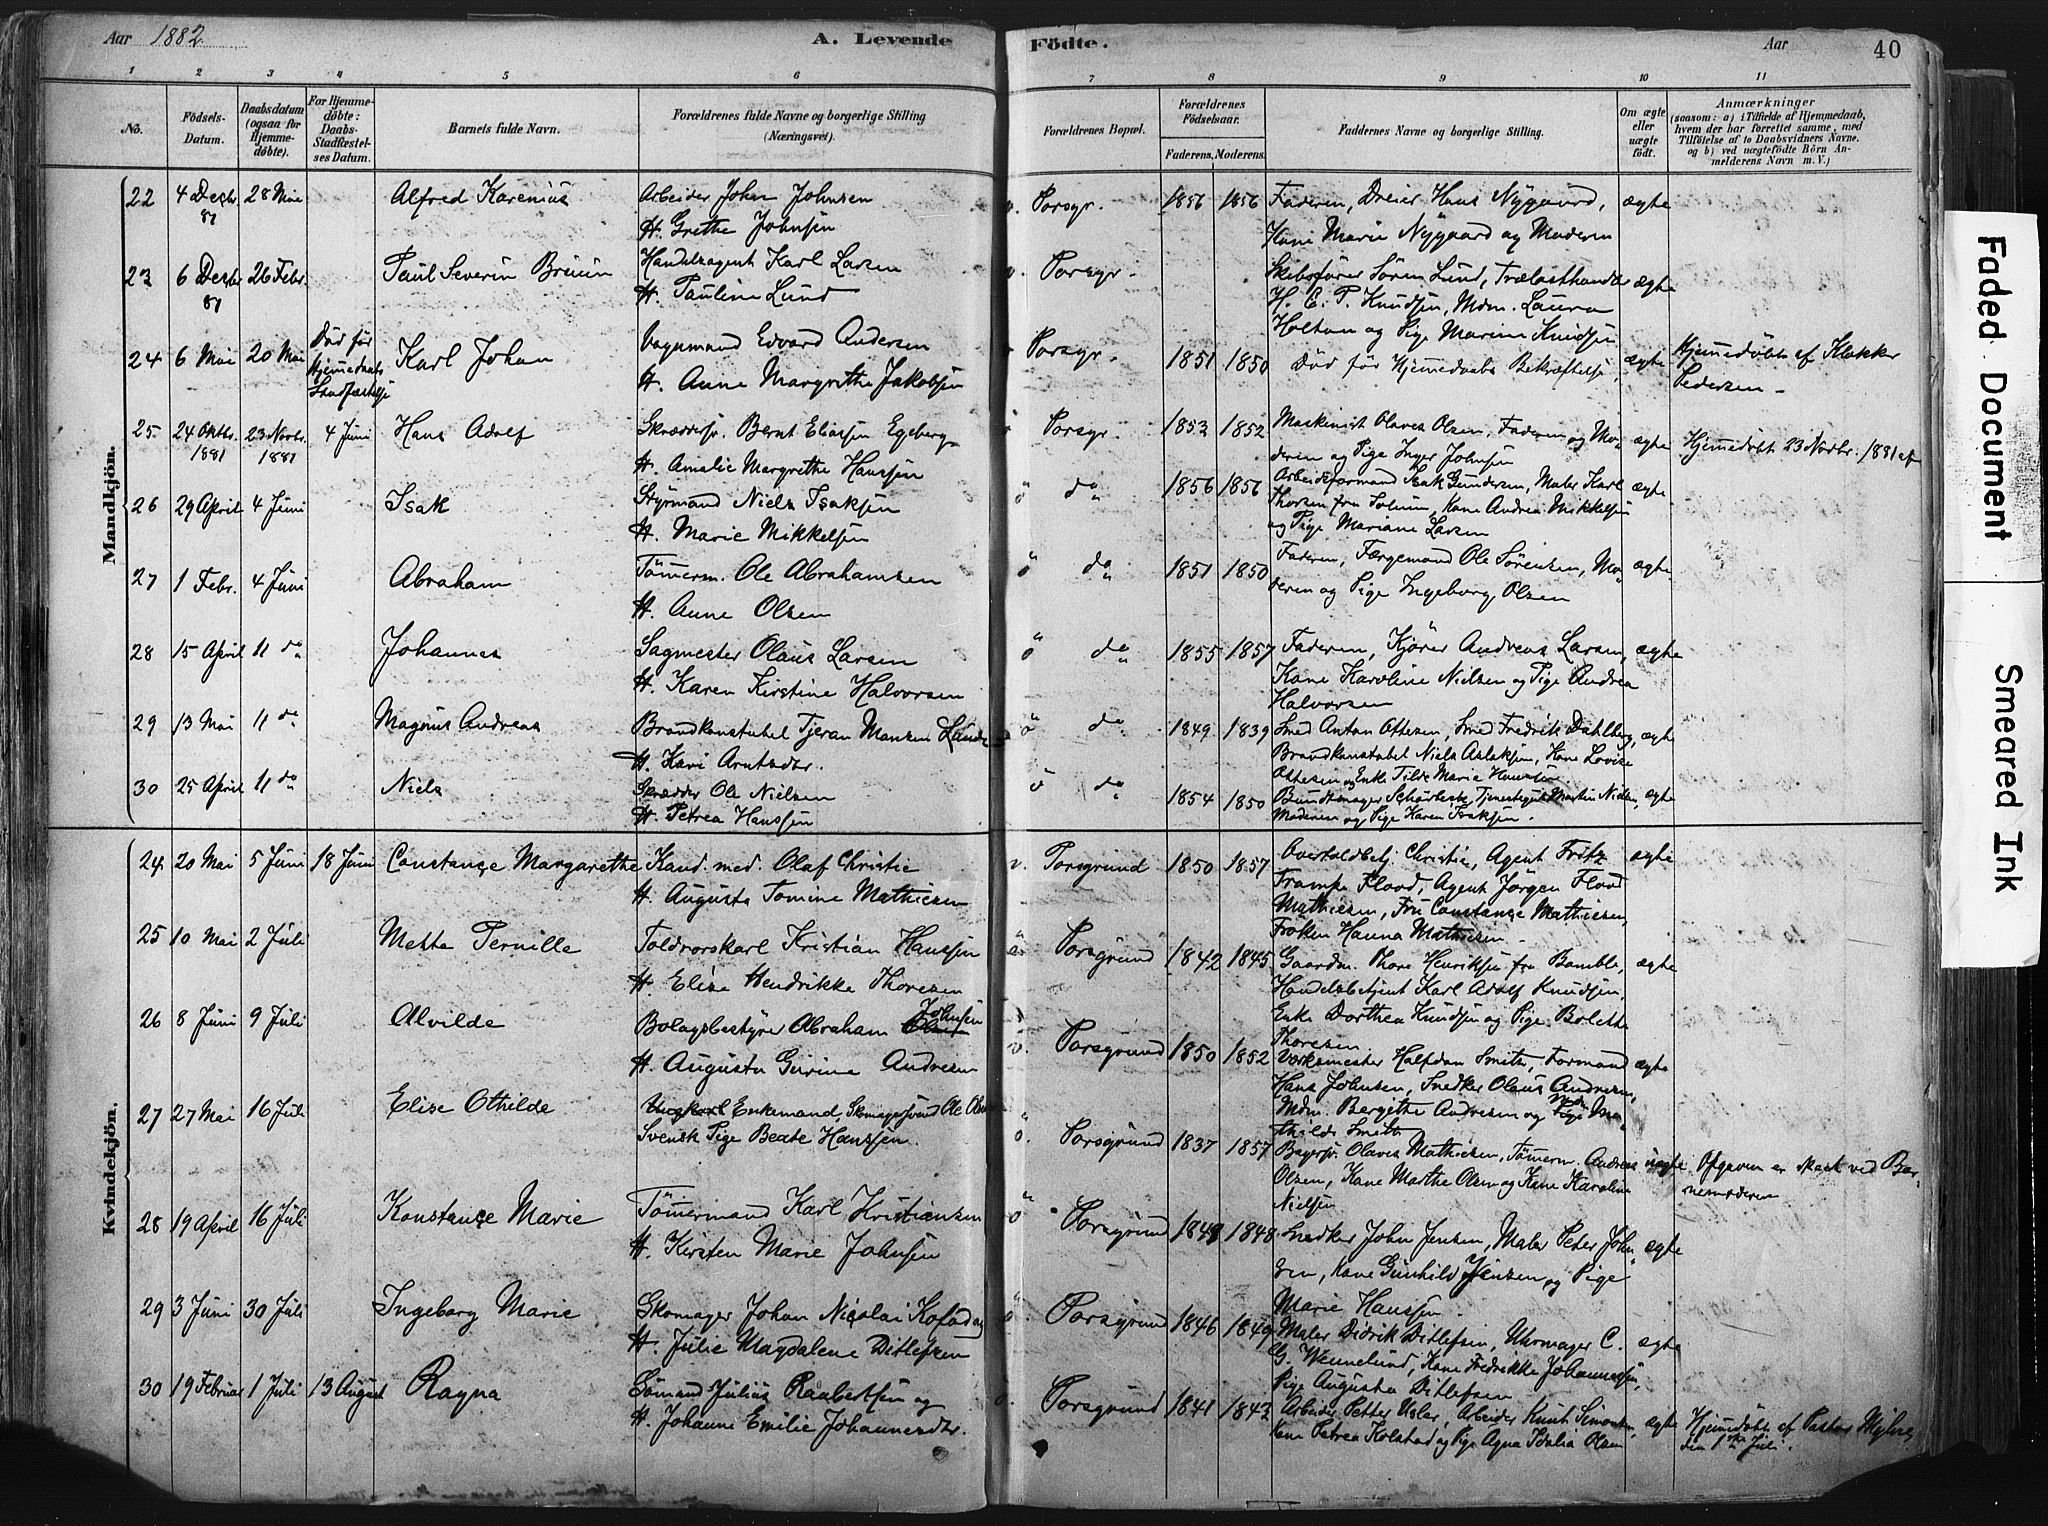 Aar 1882
A. Levende
Födte.
Aar
40
1 2 3 4 5 6 7 8 9 10 11
No.
Födsels-
Datum.
Daabsdatum
(ogsaa for
Hjemme-
döbte).
For Hjemme-
döbte:
Daabs-
Stadfæstel-
ses Datum.
Barnets fulde Navn.
Forældrenes fulde Navne og borgerlige Stilling
(Næringsvei).
Forældrenes Bopæl.
Forældrenes
Födselsaar.
Faderens. Moderens.
Faddernes Navne og borgerlige Stilling.
Om ægte
eller
uægte
født.
Anmærkninger
(saasom: a) i Tilfælde af Hjemmedaab,
hvem der har forrettet samme, med
Tilföielse af to Daabsvidners Navne.
og b) ved uægtefödte Börn An-
melderens Navn m. V.)
Mandkjön.
22 4 Decbr 81 28 Mai Alfred Karenius
Arbeider Johan Johnsen
H. Grethe Johnsen
Porsgr. 1856 1856
Faderen, Dreier Hans Nygaard,
Kone Marie Nygaard og Moderen
ægte
23 6 Decbr 81 26 Febr. Paul Severin Bruun
Handelsagent Karl Larsen
H. Pauline Lund
Porsgr.
Skibsfører Søren Lund, Trælasthandler
H. E. P. Knudsen, Mdm. Laura
Holtan og Pige Marian Knudsen
ægte
24 6 Mai 20 Mai
Död för
Hjemmedaabs
Stadfæstelse
Karl Johan
Vognmand Edvard Andersen
H. Anne Margrethe Jakobsen
Porsgr. 1851 1850
Död för Hjemmedaabs Bekræftelse,
ægte
Hjemmedöbt af Klokker
Pedersen
25. 24 Oktbr. 1881 23 Novbr. 1881 4 Juni Hans Adolf
Skræddersv. Bernt Eliasen Egeberg
H. Amalie Margrethe Hanssen
Porsgr. 1853 1852
Maskinist Olaves Olsen, Faderen og Mo-
deren og Pige Inger Johnsen
ægte
Hjemmedöbt 23 Novbr. 1881 af
26 29 April 4 Juni Isak
Styrmand Niels Isaksen
H. Marie Mikkelsen
do 1856 1856
Arbeidsformand Isak Gundersen, Maler Karl
Thorsen fra Solum, Kone Andrea Mikkelsen
og Pige Mariane Larsen
ægte
27 1 Febr. 4 Juni Abraham
Tömmerm. Ole Abrahamsen
H. Anne Olsen
do 1851 1850
Faderen, Færgemand Ole Sörensen, Mo-
deren og Pige Ingeborg Olsen
ægte
28 15 April 11 do Johannes
Sagmester Olaus Larsen
H. Karen Kirstine Halvorsen
do 1855 1857
Faderen, Kjörer Andreas Larsen,
Kone Karoline Nielsen og Pige Andrea
Halvorsen
ægte
29 13 Mai 11 do Magnus Andreas
Brandkonstabel Tjeran Monsen Lunde
H. Kari Arntsdtr.
do 1849 1839
Smed Anton Ottesen, Smed Fredrik Dahlberg,
Brandkonstabel Niels Aslaksen, Kone Lovise
Ottesen og Enke Tilde Marie Hanssen
ægte
30 25 April 11 do Niels
Skrædder Ole Nielsen
H. Petrea Hanssen
do 1854 1850
Bundtmager Tjenestegut Martin Nielsen,
Moderen og Pige Karen Isaksen.
ægte
Kvindekjön.
24. 20 Mai 5 Juni 18 Juni Constançe Margarethe
Kand. med. Olaf Christie
H. Augusta Tomine Mathiesen
Porsgrund 1850 1857
Overtoldbetj. Christie, Agent Fritz
Trampe Flood, Agent Jörgen Flood
Mathiesen, Fru Constançe Mathiesen,
Fröken Hanna Mathiesen
ægte
25 10 Mai 2 Juli Mette Pernille
Toldrorskarl Kristian Hanssen
H. Elise Hendrikke Thoresen
Porsgrund 1842 1845
Gaardm. Thore Henriksen fra Bamble,
Handelsbetjent Karl Adolf Knudsen,
Enke Dorthea Knudsen og Pige Bolette
Thoresen
ægte
26 8 Juni 9 Juli Alvilde
Bolagsbestyrer Abraham Johnsen
H. Augusta Gurine Andresen
Porsgrund 1850 1852
Værksmester Halfdan Smith, Formand
Hans Johnsen, Snedker Olaus Andresen,
Mdm. Bergitte Andresen og Mdm. Ma-
thilde Smith
ægte
27 27 Mai 16 Juli Elise Othilde
Ungkarl Enkemand Skomagersvend Ole Olsen
Svensk Pige Beate Hanssen.
Porsgrund 1837 1857
Bagersv. Olaves Mathiesen, Tömmerm. Andreas
Olsen, Kone Marthe Olsen og Kone Karoline
Nielsen
uægte
Opgaven er skeet ved Bar-
nemoderen
28 19 April 16 Juli Konstançe Marie
Tömmermand Karl Kristiansen
H. Kirsten Marie Johnsen
Porsgrund 1849 1848
Snedker John Jensen, Maler Peter John-
sen, Kone Gunhild Jensen og Pige
Marie Hanssen.
ægte
29 3 Juni 30 Juli Ingeborg Marie
Skomager Johan Niçolai Kofod og
H. Julie Magdalene Ditlefsen
Porsgrund 1846 1849
Maler Didrik Ditlefsen, Uhrmager C.
G. Wennelund, Kone Fredrikke Johannessen,
Pige Augusta Ditlefsen
ægte
30 19 Februar 1 Juli 13 August Ragna
Sömand Julius Raabertsen og
H. Johanne Emilie Johannesdtr.
Porsgrund 1841 1842
Arbeider Petter Usler, Arbeider Knut Simonsen,
Kone Petrea Kolstad og Pige Agna Idalia Olsen
ægte
Hjemmedöbt af Pastor
den 1ste Juli.
Faded Document
Smeared Ink